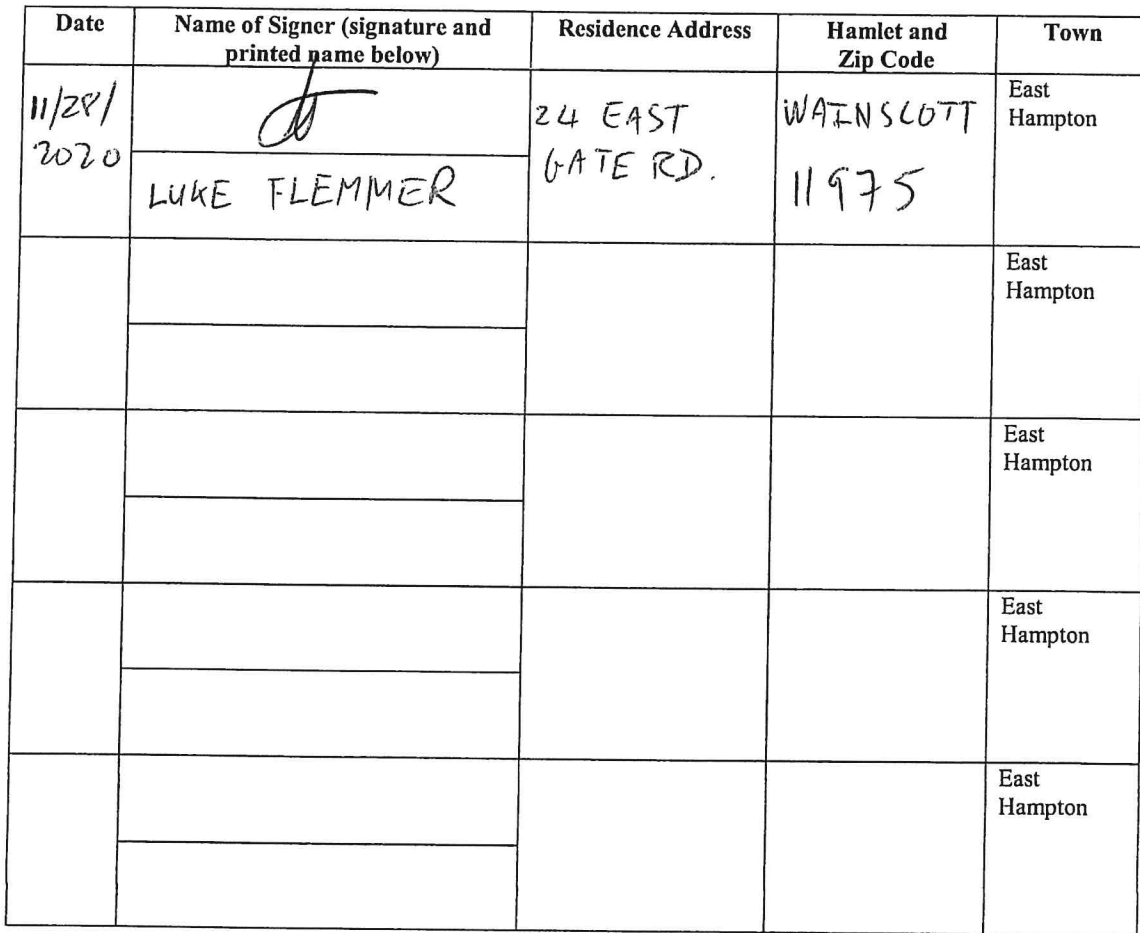 Date
Name of Signer (signature and
printed name below)
Residence Address
Hamlet and
Zip Code
Town
11/28/
2020
LUKE FLEMMER
24 EAST
GATE RD.
WAINSCOTT
11975
East
Hampton
East
Hampton
East
Hampton
East
Hampton
East
Hampton